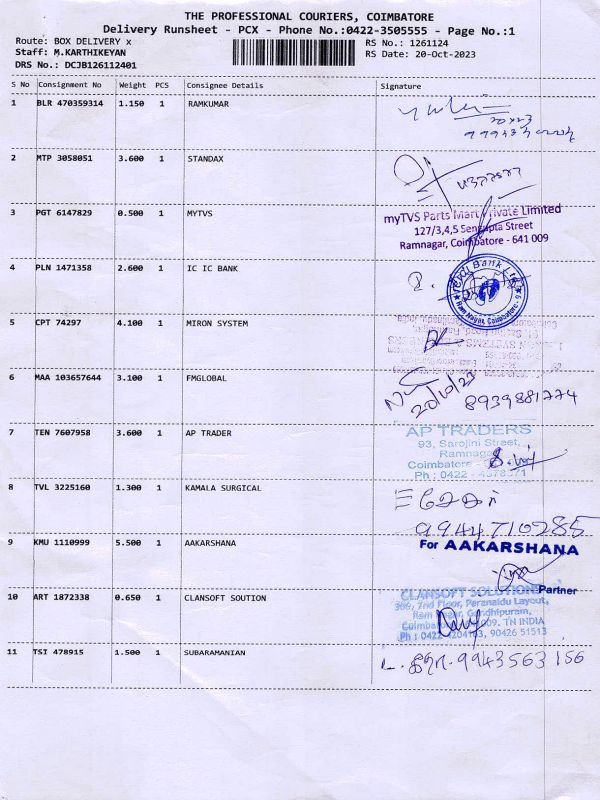 THE PROFESSIONAL COURIERS, COIMBATORE
Delivery Runsheet - PCX - Phone No.:0422-3505555 - Page No.:1
Route: BOX DELIVERY x
RS No.: 1261124
Staff: M.KARTHIKEYAN
RS Date: 20-Oct-2023
DRS No.: DCJB126112401
S No Consignment No Weight PCS Consignee Details Signature
1 BLR 470359314 1.150 1 RAMKUMAR
2 MTP 3058051 3.600 1 STANDAX
3 PGT 6147829 0.500 1 MYTVS
myTVS Parts Mart Private Limited
127/3,4,5 Sengupta Street
Ramnagar, Coimbatore - 641 009
4 PLN 1471358 2.600 1 IC IC BANK
Bank
Ram Nagar, Coimbatore-9
5 CPT 74297 4.100 1 MIRON SYSTEM
6 MAA 103657644 3.100 1 FMGLOBAL
20/10/23 8939881774
7 TEN 7607958 3.600 1 AP TRADER
AP TRADERS
93, Sarojini Street,
Ramnagar
Coimbatore -
Ph : 0422 - 4378371
8 TVL 3225160 1.300 1 KAMALA SURGICAL
9944710285
9 KMU 1110999 5.500 1 AAKARSHANA
For AAKARSHANA
Partner
10 ART 1872338 0.650 1 CLANSOFT SOUTION
CLANSOFT SOLUTIONS
306, 2nd Floor, Peranaidu Layout,
Ram Nagar, Gandhipuram,
009. TN INDIA
90426 51513
11 TSI 478915 1.500 1 SUBARAMANIAN
9943563156